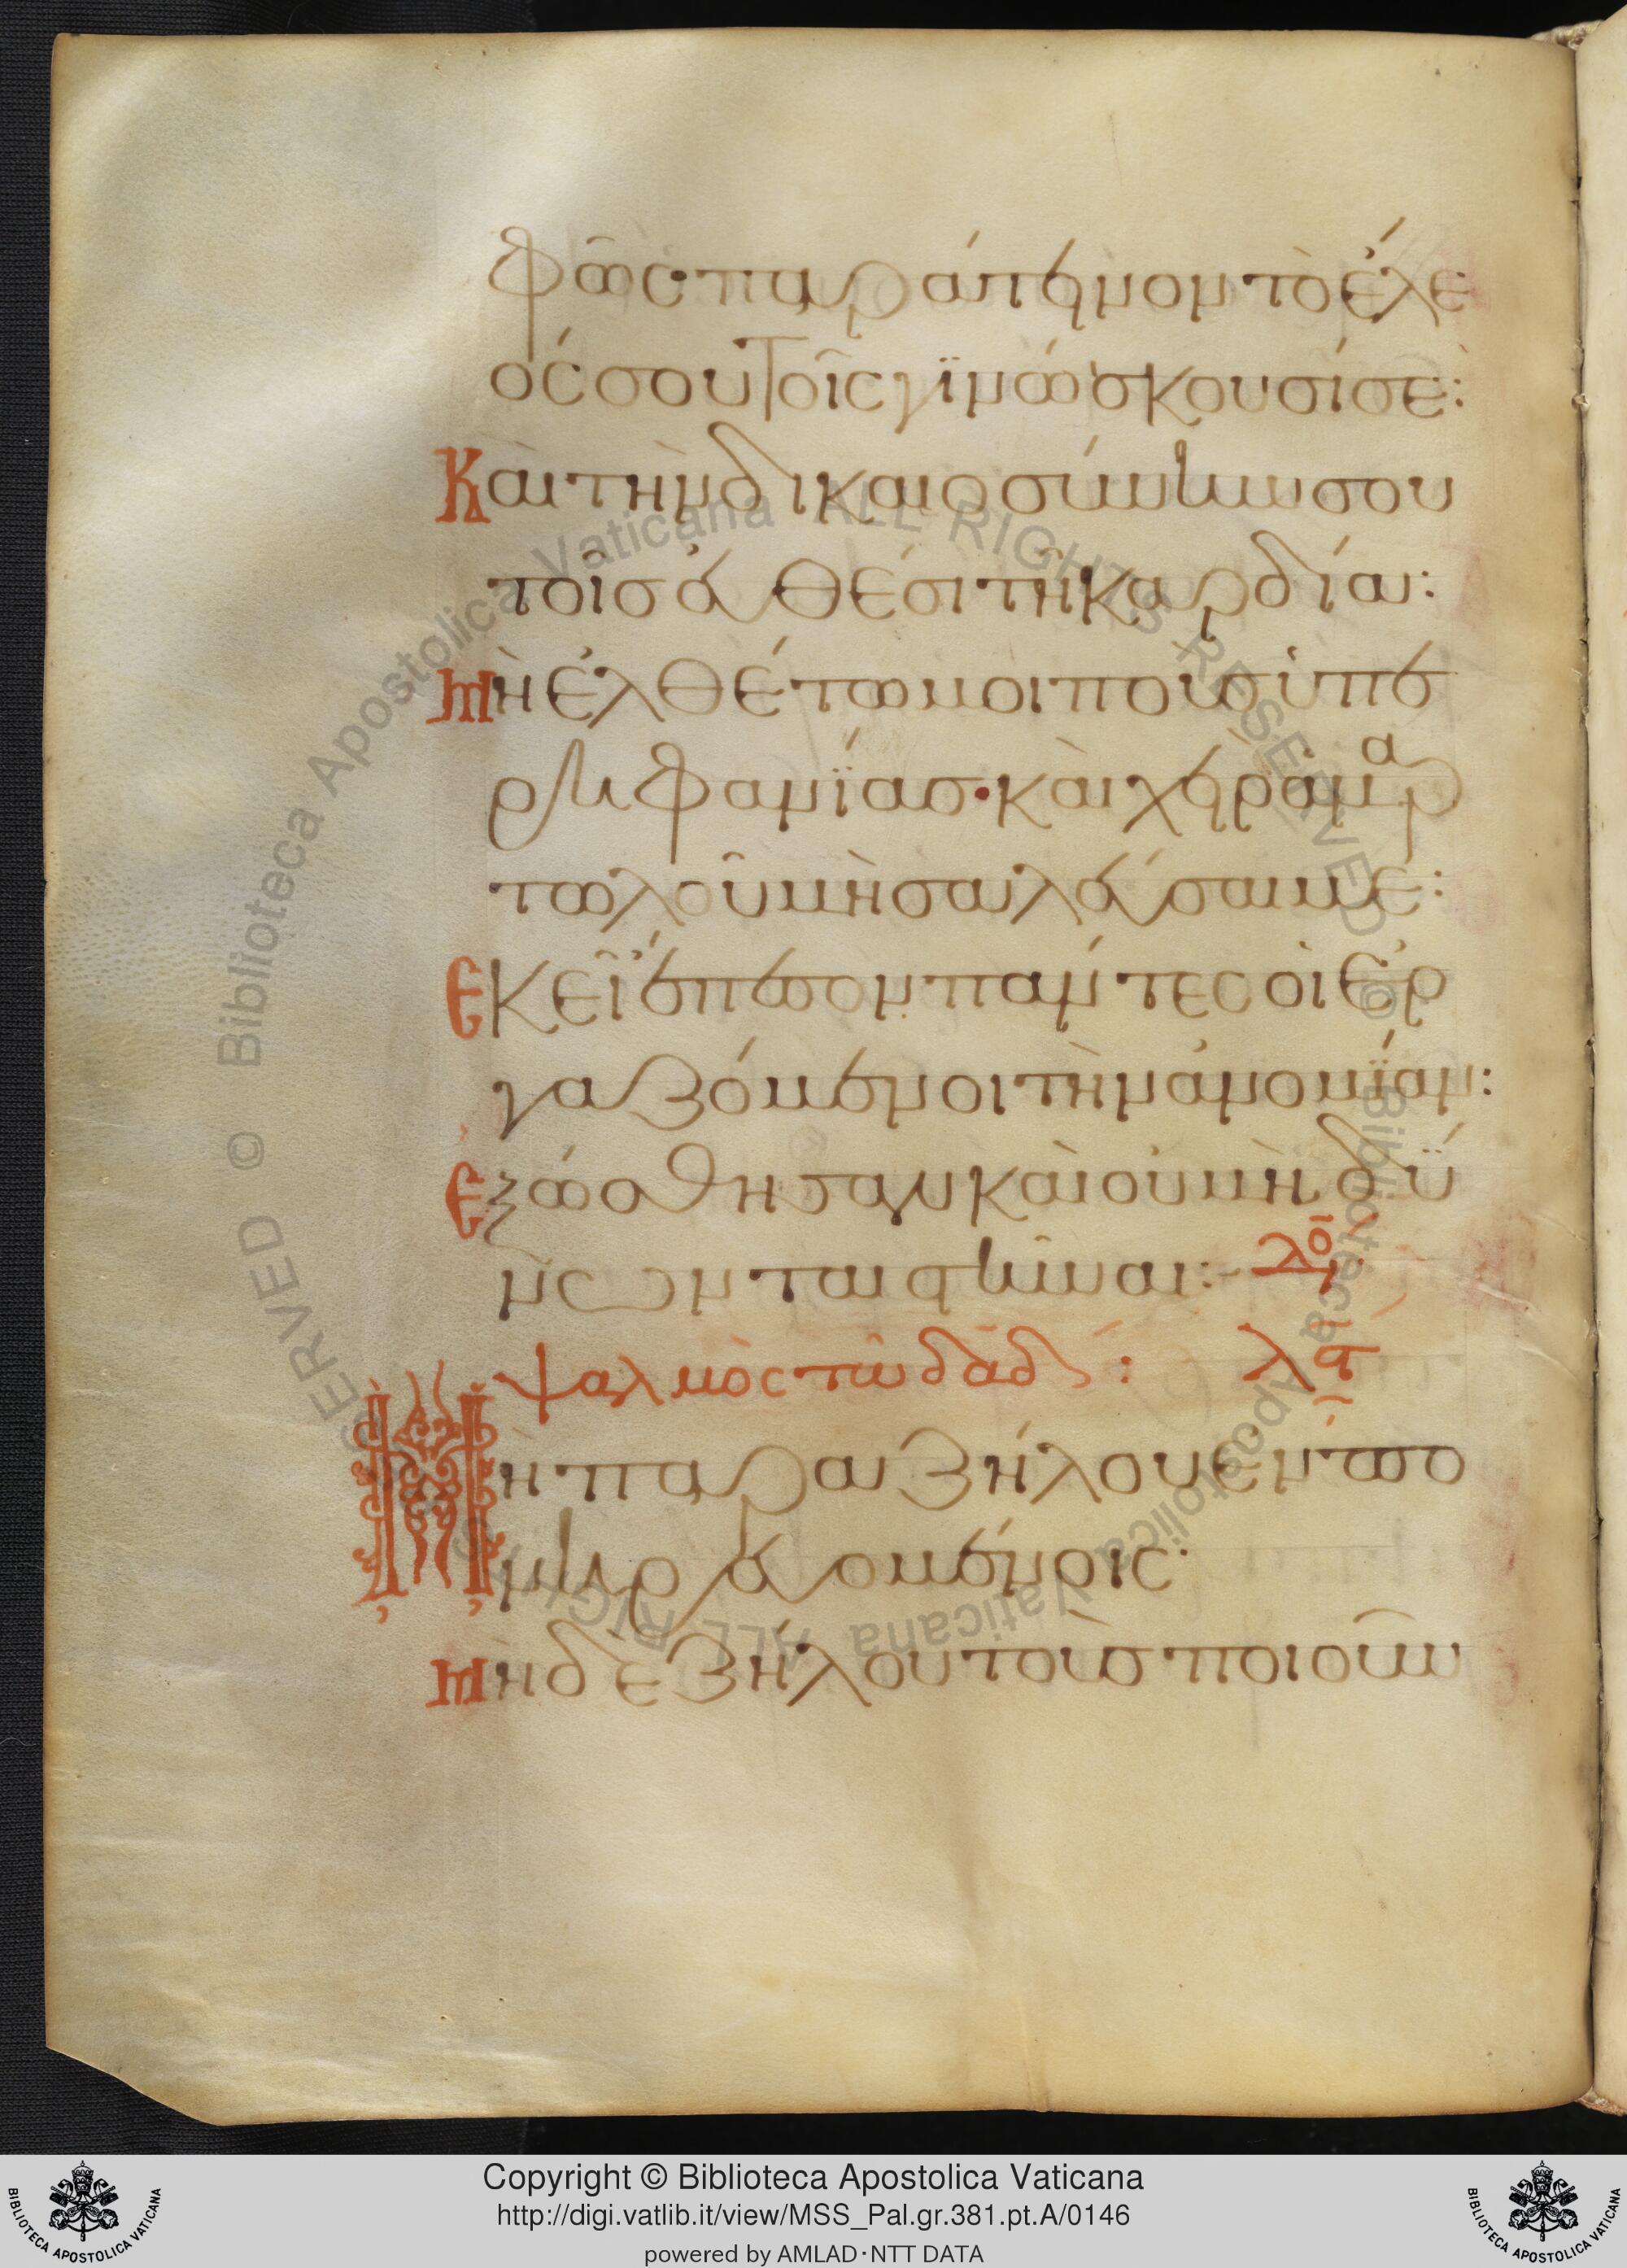 φῶς· παράτεινον τὸ ἔλε
ός σου τοῖς γϊνώσκουσί σε:
Καὶ τὴν δικαιοσύνην σου
τοῖς εὐθέσι τῆ καρδία:
Μὴ ἐλθέτω μοι ποὺς ὑπε
ρηφανΐας· καὶ χεὶρ ἁμαρ
τωλοῦ μὴ σαλεύσαι με:
Ἐκεῖ ἔπεσον παντες οἱ ἐρ
γαζόμενοι τὴν ἀνομΐαν:
Ἐξώσθησαν καὶ οὐ μὴ δύ
νωνται στῆναι:- λό
ψαλμὸς τῶ δαδ: λϛ
Μὴ παραζήλου ἐν πο
νηρευομένοις·
Μηδὲ ζήλου τοὺς ποιοῦν
SERVED © Biblioteca Apostolica Vaticana ALL RIGHTS RESERVED © Biblioteca Apostolica Vaticana ALL RIGHTS
Copyright © Biblioteca Apostolica Vaticana
http://digi.vatlib.it/view/MSS_Pal.gr.381.pt.A/0146
powered by AMLAD·NTT DATA
BIBLIOTECA APOSTOLICA VATICANA
BIBLIOTECA APOSTOLICA VATICANA